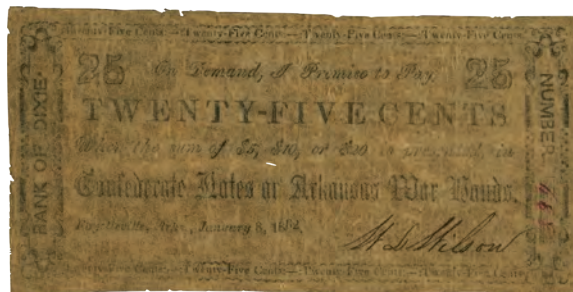 Twenty-Five Cents.—Twenty-Five Cents.—Twenty-Five Cents.—Twenty-Five Cents
25 On Demand, I Promise to Pay 25
TWENTY-FIVE CENTS
When the sum of $5, $10, or $20 is presented, in
Confederate Notes or Arkansas War Bonds.
Fayetteville, Arks., January 8, 1862
W D Wilson
Twenty-Five Cents.—Twenty-Five Cents—Twenty-Five Cents.—Twenty-Five Cents
BANK OF DIXIE.
NUMBER